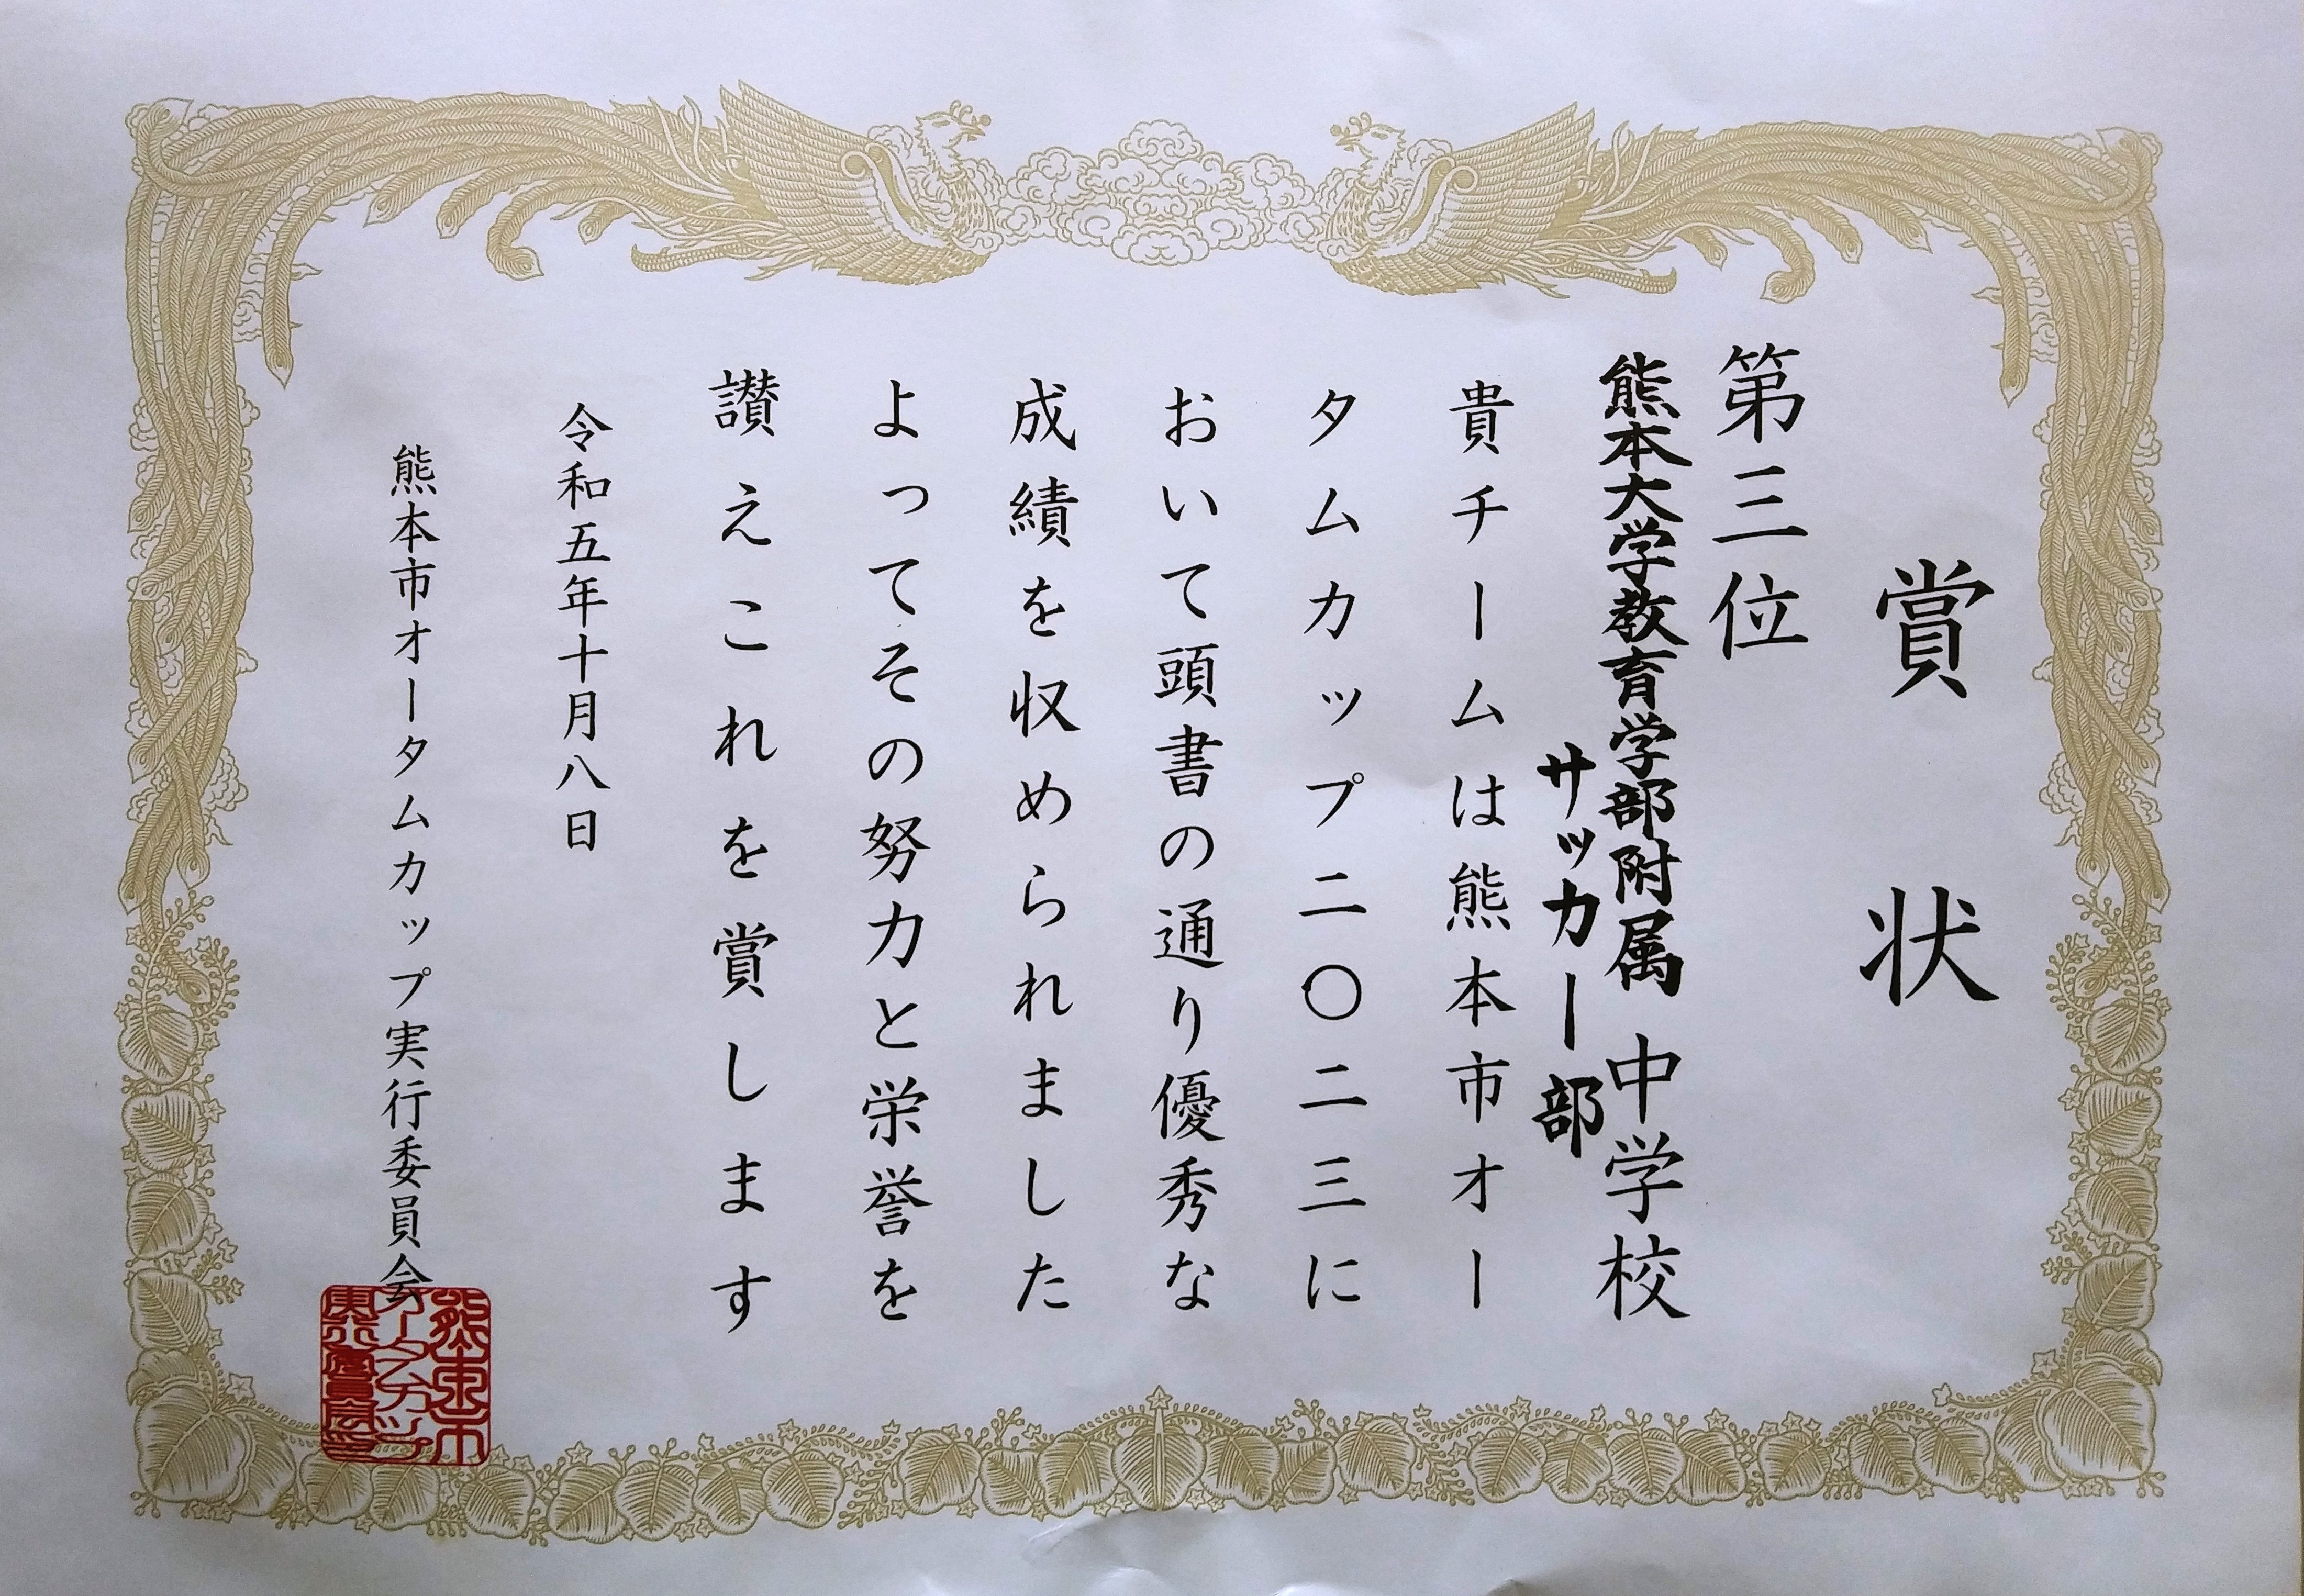 賞状
第三位
熊本大学教育学部附属中学校
サッカー部
貴チームは熊本市オー
タムカップ二〇二三に
おいて頭書の通り優秀な
成績を収められました
よってその努力と栄誉を
讃えこれを賞します
令和五年十月八日
熊本市オータムカップ実行委員会